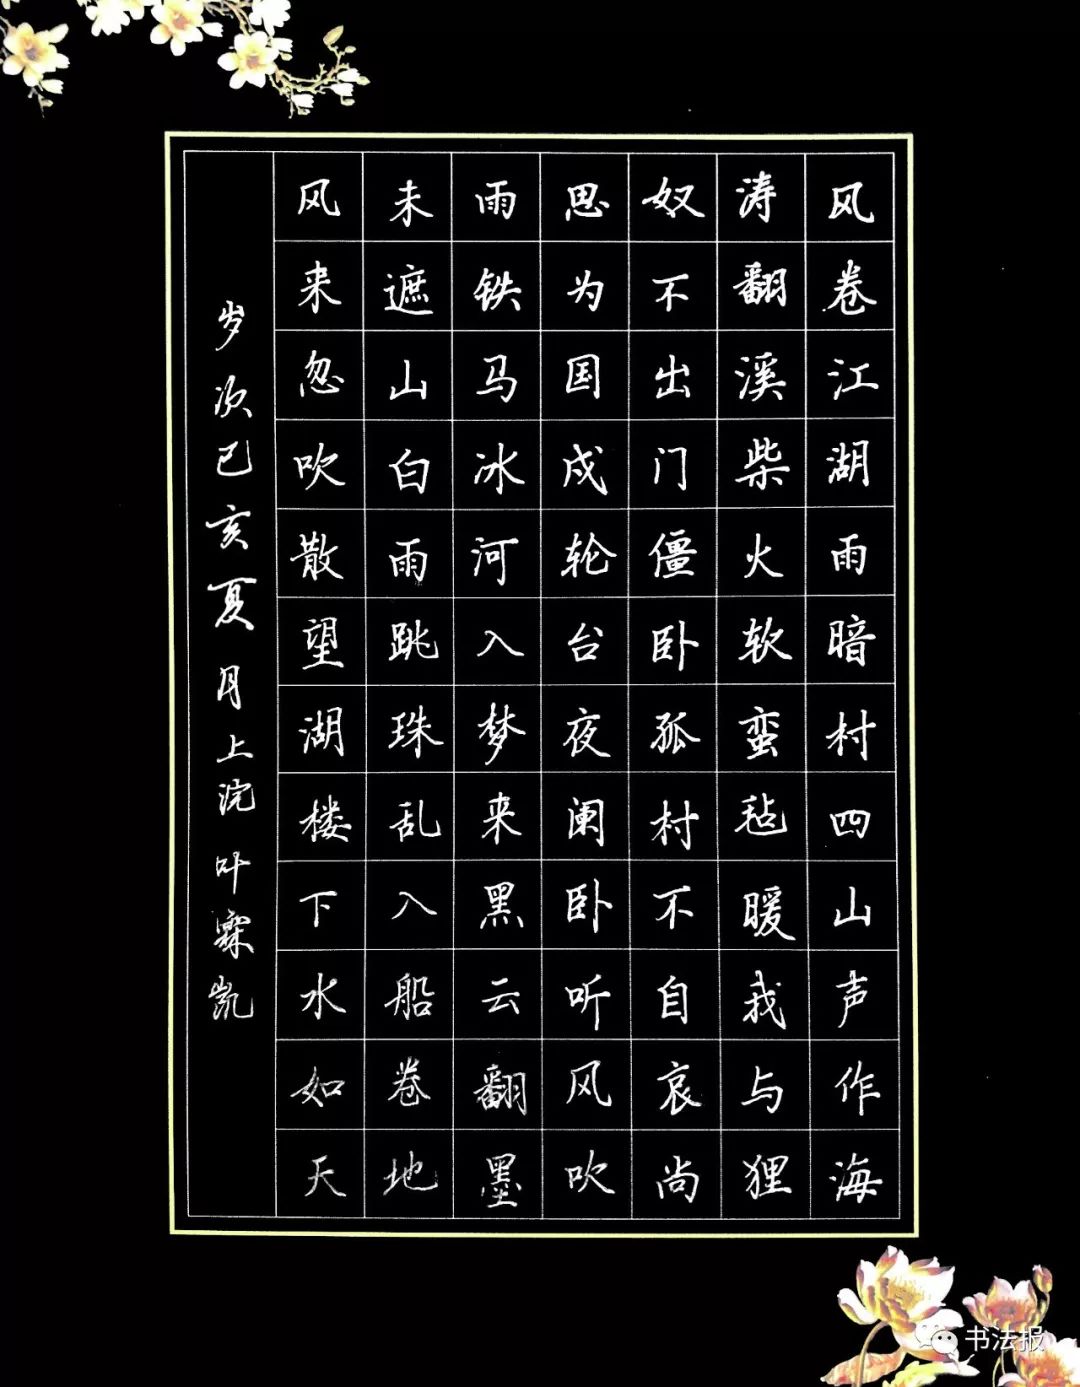 风卷江湖雨暗村四山声作海
涛翻溪柴火软蛮毡暖我与狸
奴不出门僵卧孤村不自哀尚
思为国戍轮台夜阑卧听风吹
雨铁马冰河入梦来黑云翻墨
未遮山白雨跳珠乱入船卷地
风来忽吹散望湖楼下水如天
岁次己亥夏月上浣叶霖凯
书法报